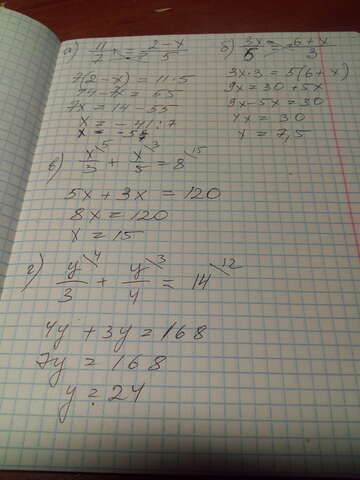 а) 11/7 = 2-x/5
7(2-x) = 11·5
14-7 = 55
7x = 14-55
x = -41:7
x = -5
б) 3x/5 = 6+x/3
3x·3 = 5(6+x)
9x = 30+5x
9x-5x = 30
4x = 30
x = 7,5
в) x\5/3 + x\3/5 = 8\15
5x + 3x = 120
8x = 120
x = 15
г) y\4/3 + y\3/4 = 14\12
4y + 3y = 168
7y = 168
y = 24